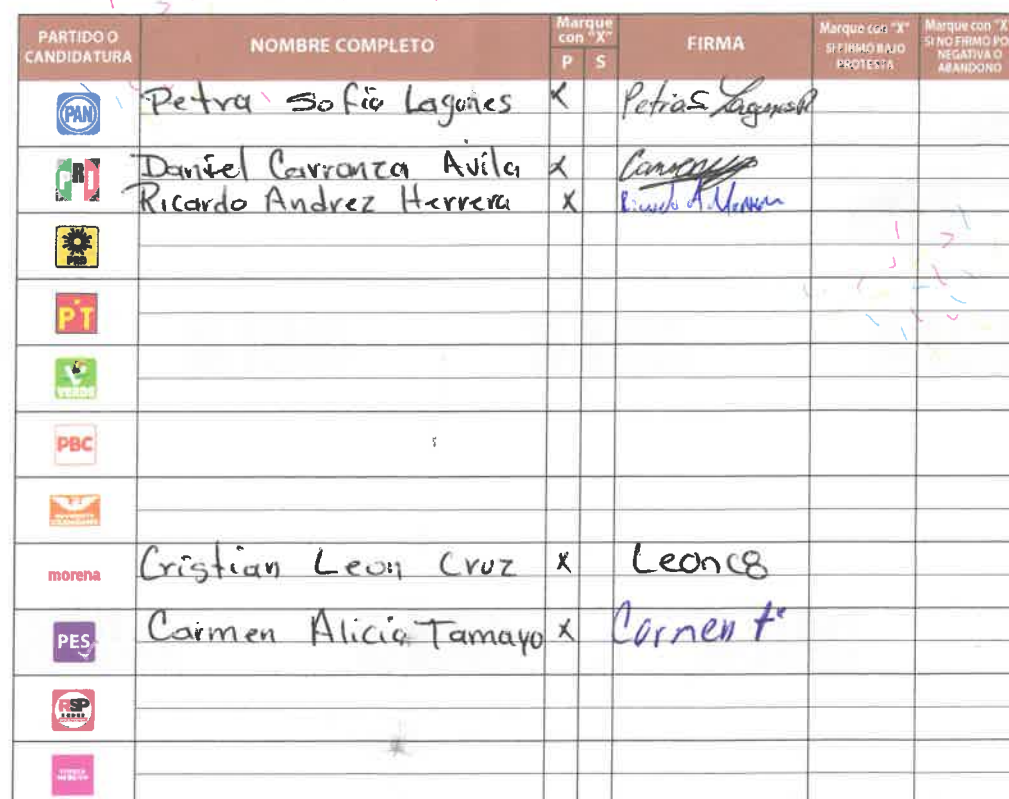 PARTIDO O CANDIDATURA NOMBRE COMPLETO Marque con "X" P S FIRMA Marque con "X" SI FIRMÓ BAJO PROTESTA Marque con "X" SI NO FIRMÓ POR NEGATIVA O ABANDONO
PAN Petra Sofia Lagunes X Petra S Lagunes R
PRI Daniel Carranza Avila X
Ricardo Andrez Herrera X Ricardo A. Herrera
PRD
PT
VERDE
PBC
morena Cristian Leon Cruz X Leon C8
PES Carmen Alicia Tamayo X Carmen t
RSP